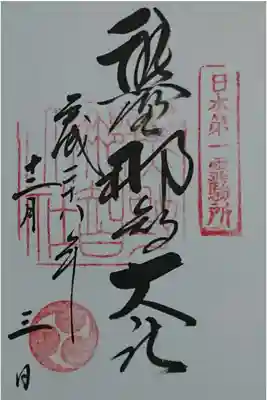 日本第一霊験所
熊野那智大社
平成二十八年
十二月
三日